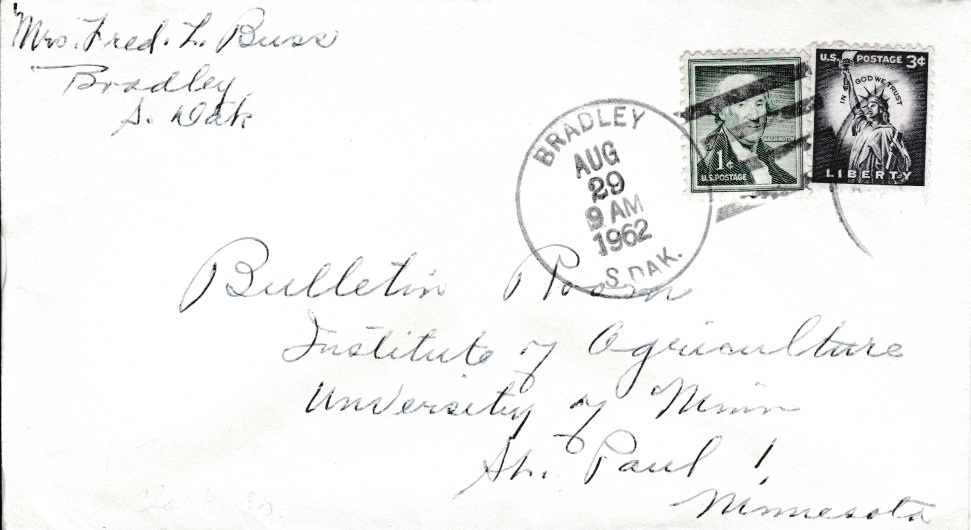 Mrs. Fred. L. Buss
Bradley
S. Dak
BRADLEY
AUG
29
9 AM
1962
S. DAK.
WASHINGTON
1¢
U.S. POSTAGE
U.S. POSTAGE 3¢
IN GOD WE TRUST
LIBERTY
Bulletin Room
Institute of Agriculture
University of Minn
St. Paul 1
Minnesota